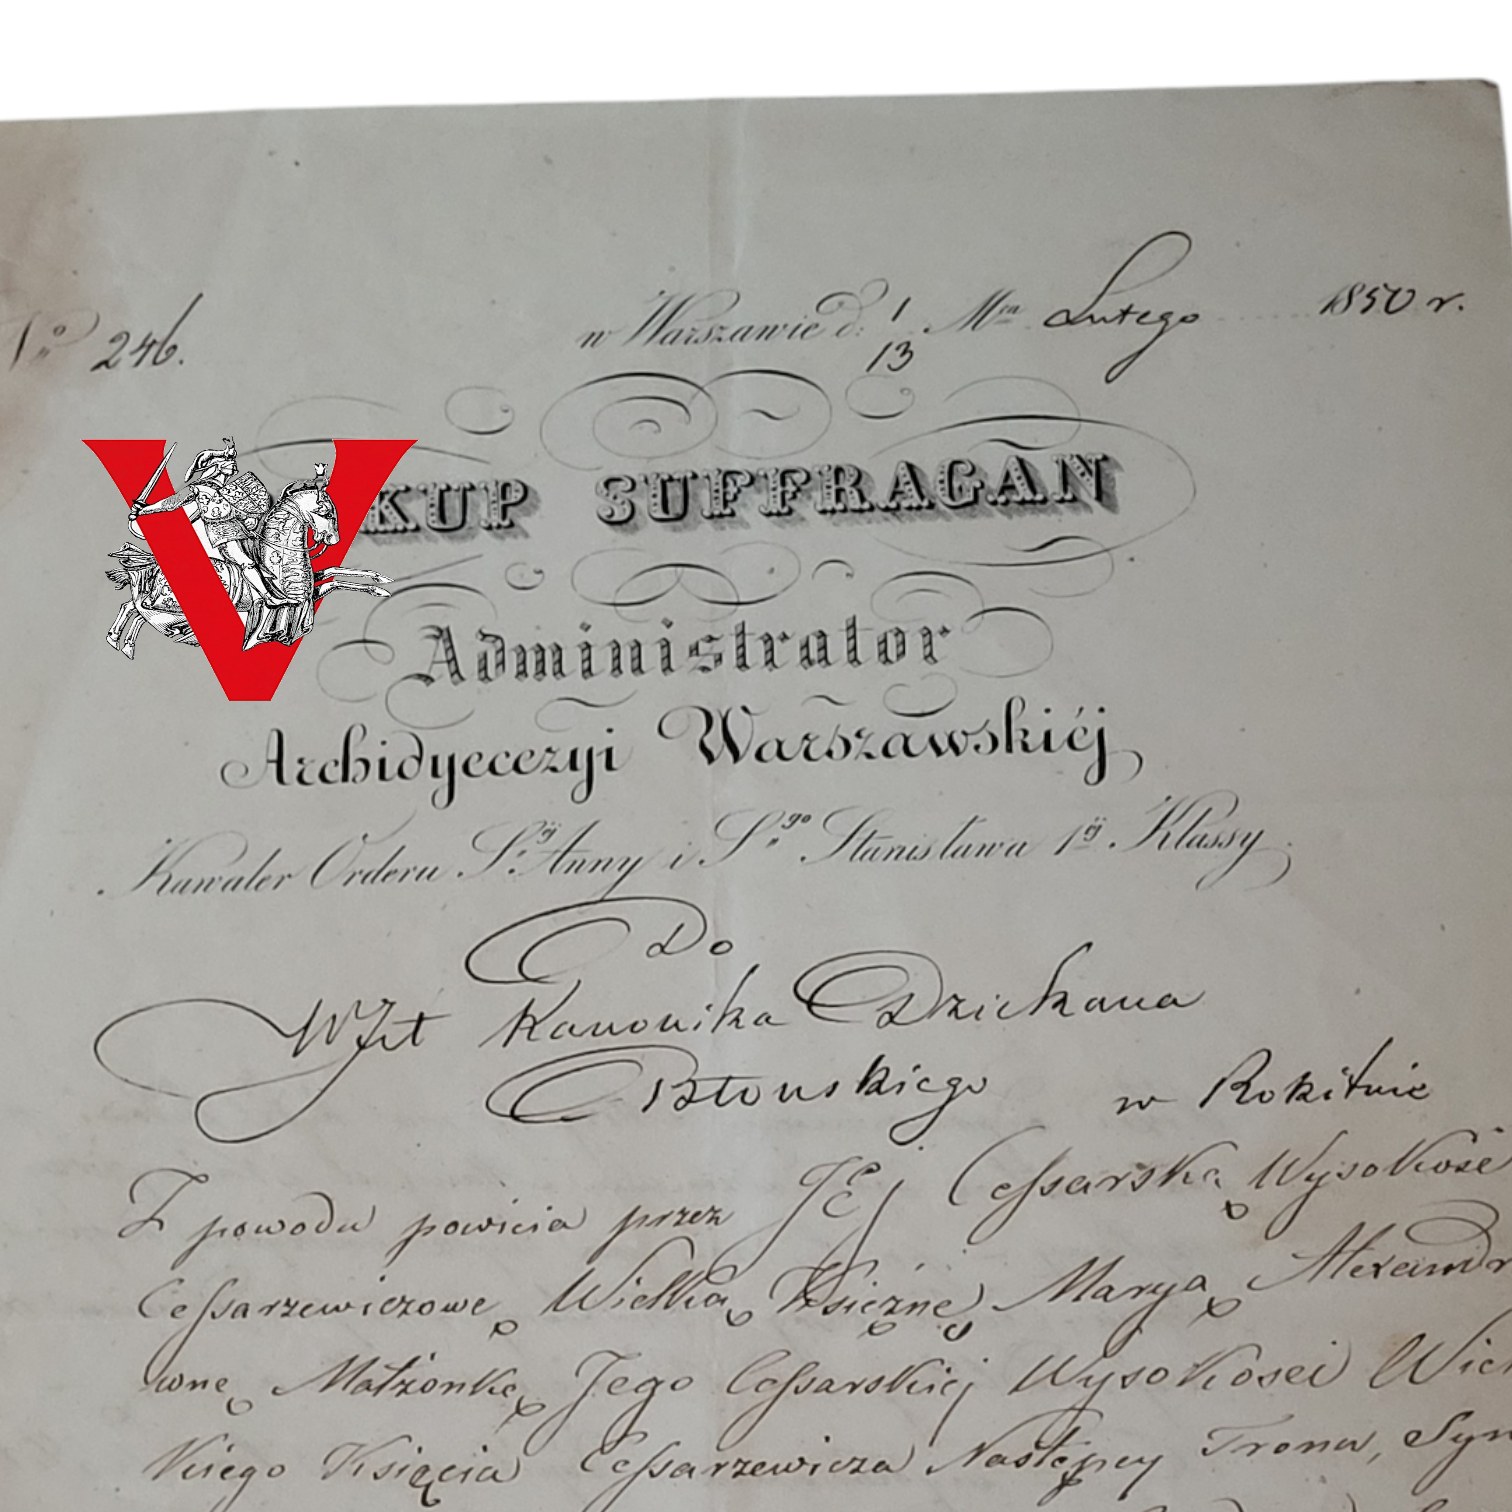 No 246.
w Warszawie d: 1/13 Mca Lutego 1850 r.
V
KUP SUFFRAGAN
Administrator
Archidyecezyi Warszawskiéj
Kawaler Orderu Sej Anny i Sgo Stanisława 1ej Klassy.
Do
WJX Kanonika Dziekana
Błonskiego w Rokitnie
Z powodu powicia przez JEj Cessarską Wysokość
Cessarzewiczowę Wielką Księżnę Maryą Alexandr
wnę Małżonkę Jego Cessarskiej Wysokosci Wiel
kiego Księcia Cessarzewicza Następcy Tronu, Syn